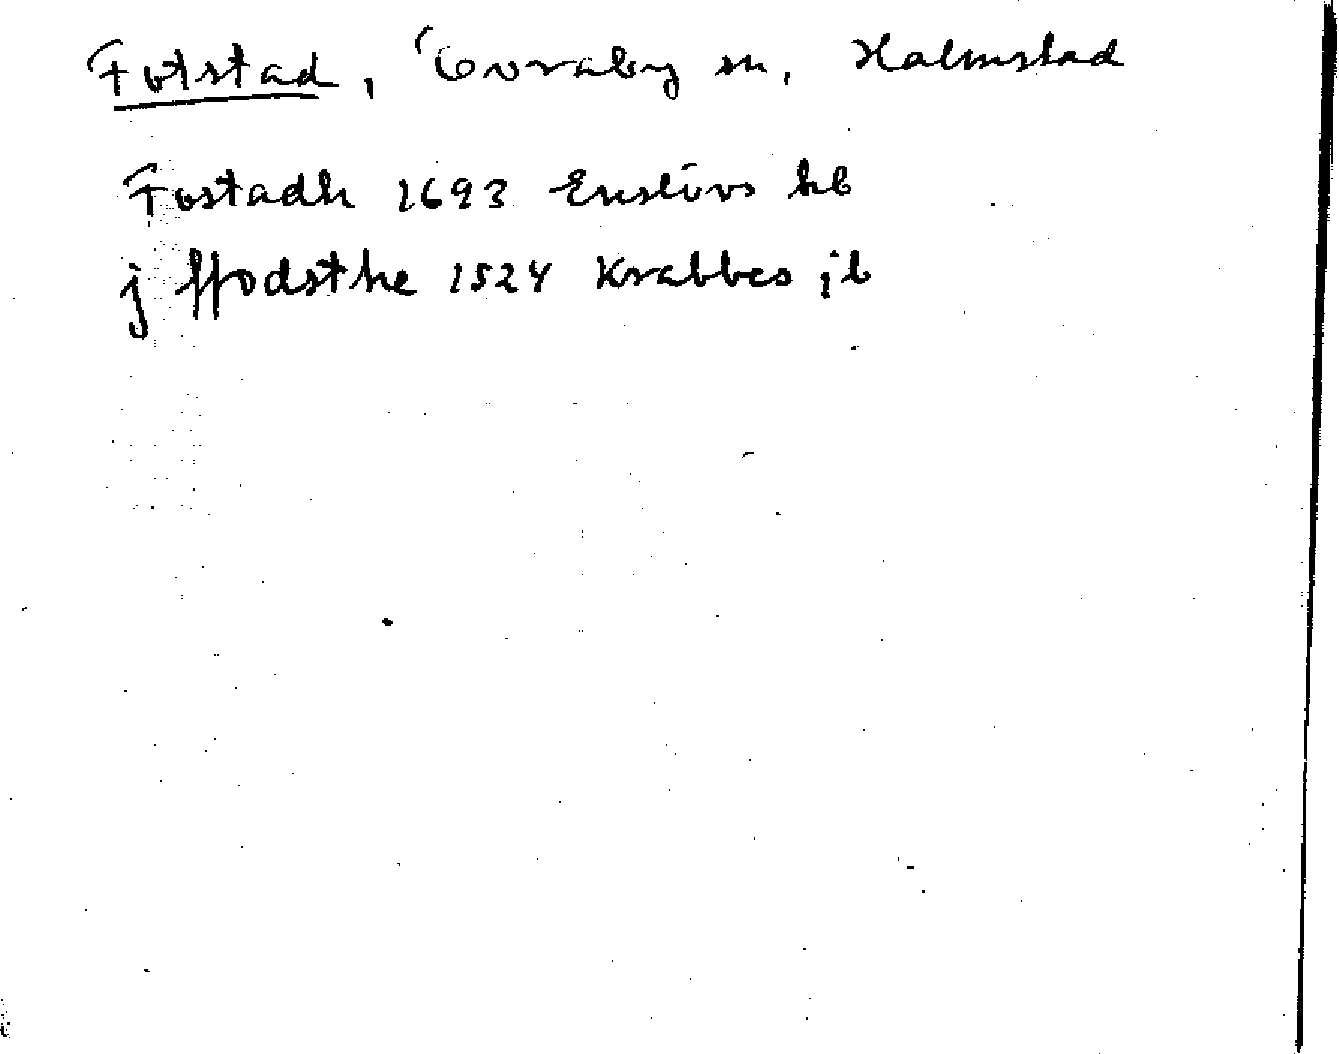 Fotstad, Övraby sn, Halmstad
Fostadh 1693 Enslövs kb
j ffodsthe 1524 Krabbes jb